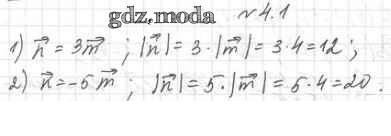 gdz.moda № 4.1
1) n⃗ = 3m⃗ ; |n⃗| = 3 · |m⃗| = 3 · 4 = 12 ;
2) n⃗ = -5m⃗ ; |n⃗| = 5 · |m⃗| = 5 · 4 = 20 .